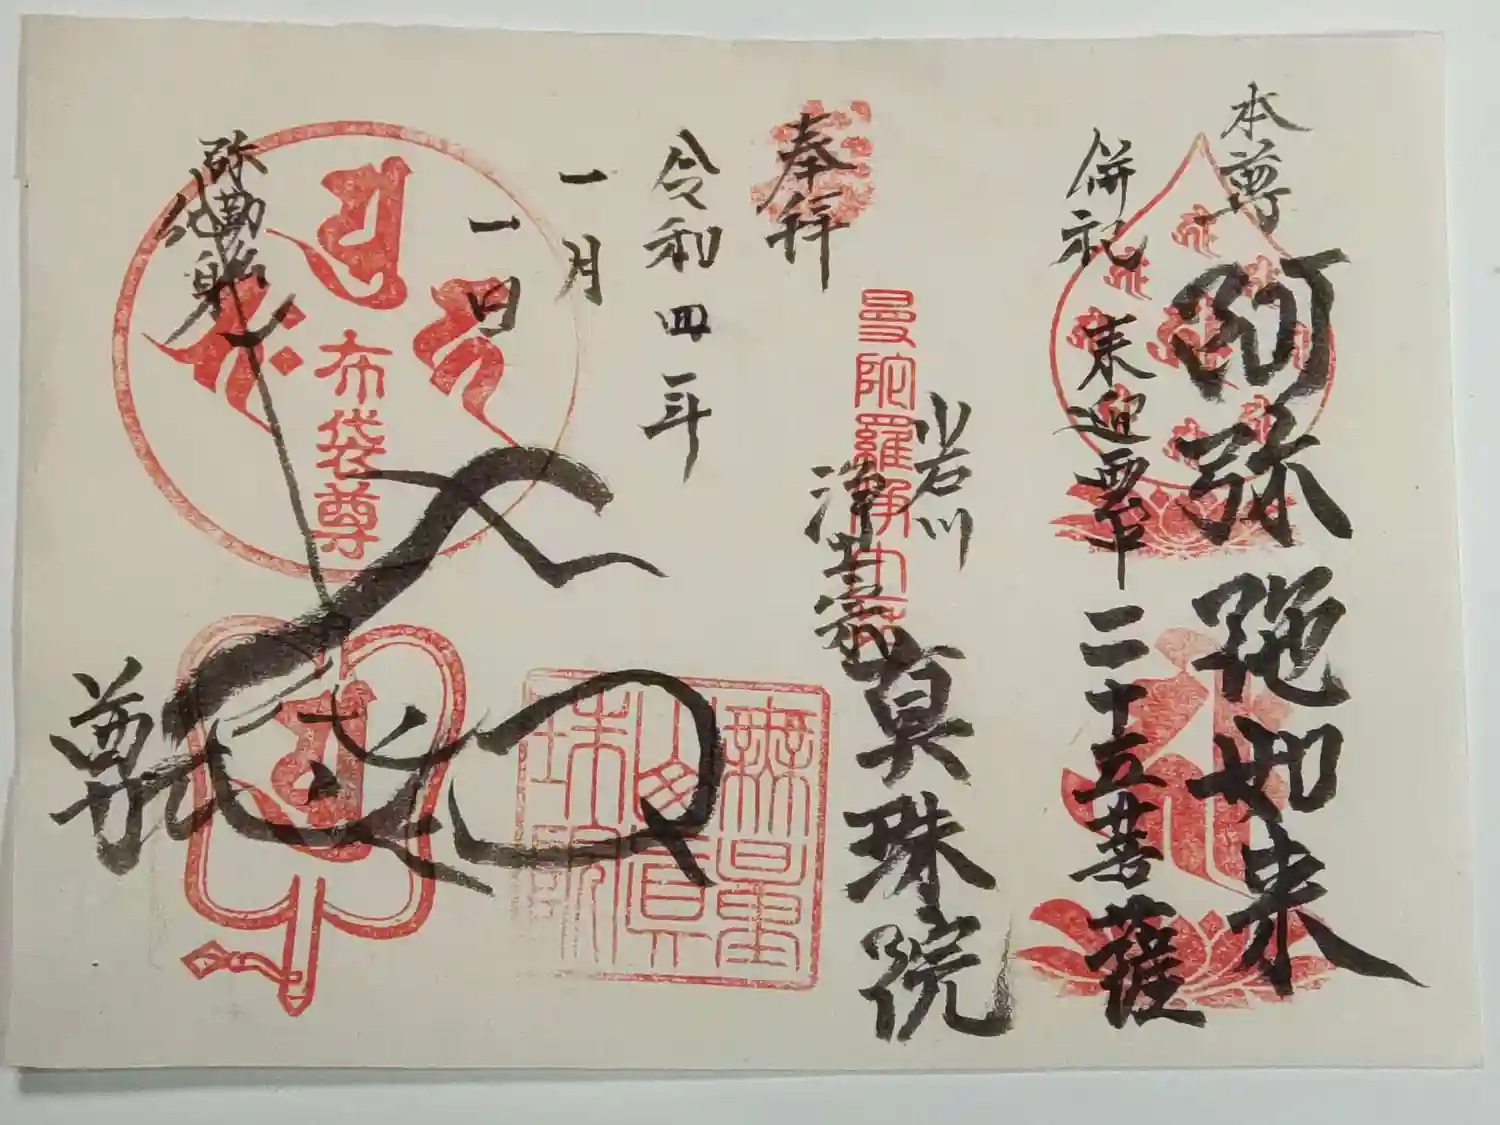 本尊
阿弥陀如来
併祀
来迎
二十五菩薩
小岩川
浄土宗
真珠院
曼陀羅
奉拝
令和四年
一月
一日
布袋尊
弥勒
化身
尊
無量山真珠院